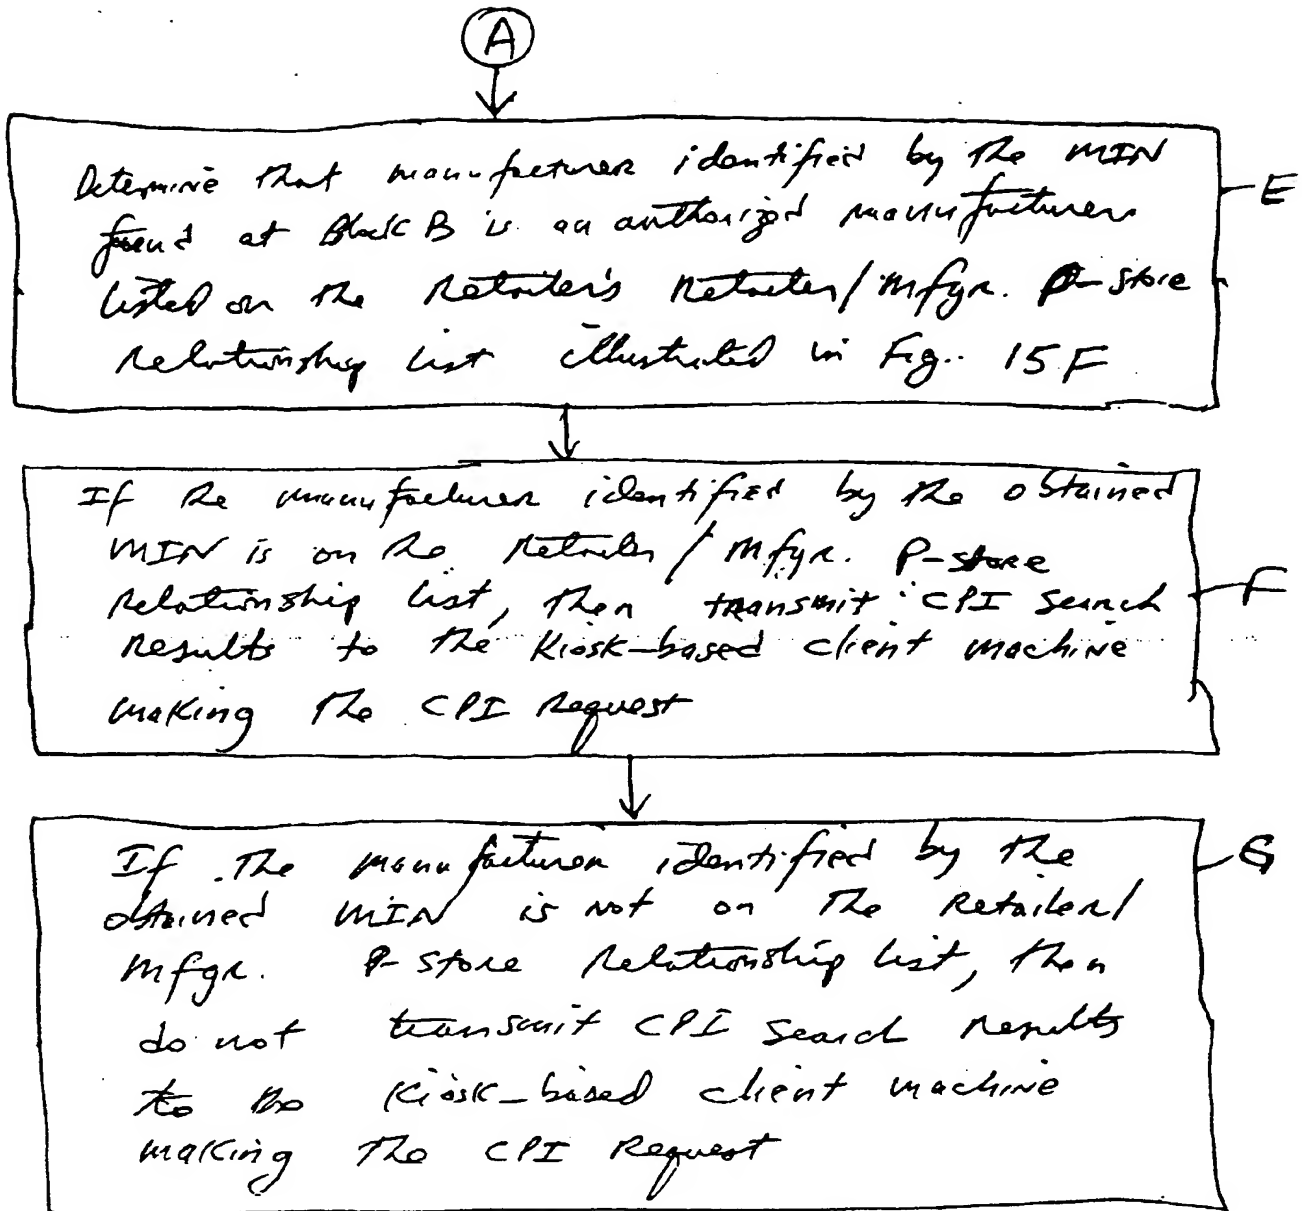 A
Determine that manufacturer identified by the MIN
found at Block B is an authorized manufacturer
listed on the Retailer's Retailer/Mfgr. P-Store
Relationship List illustrated in Fig. 15F
E
If the manufacturer identified by the obtained
MIN is on the Retailer/Mfgr. P-Store
Relationship List, then transmit CPI Search
Results to the Kiosk-based client machine
making the CPI Request
F
If the manufacturer identified by the
obtained MIN is not on the Retailer/
Mfgr. P-Store Relationship List, then
do not transmit CPI Search Results
to the Kiosk-based client machine
making the CPI Request
G